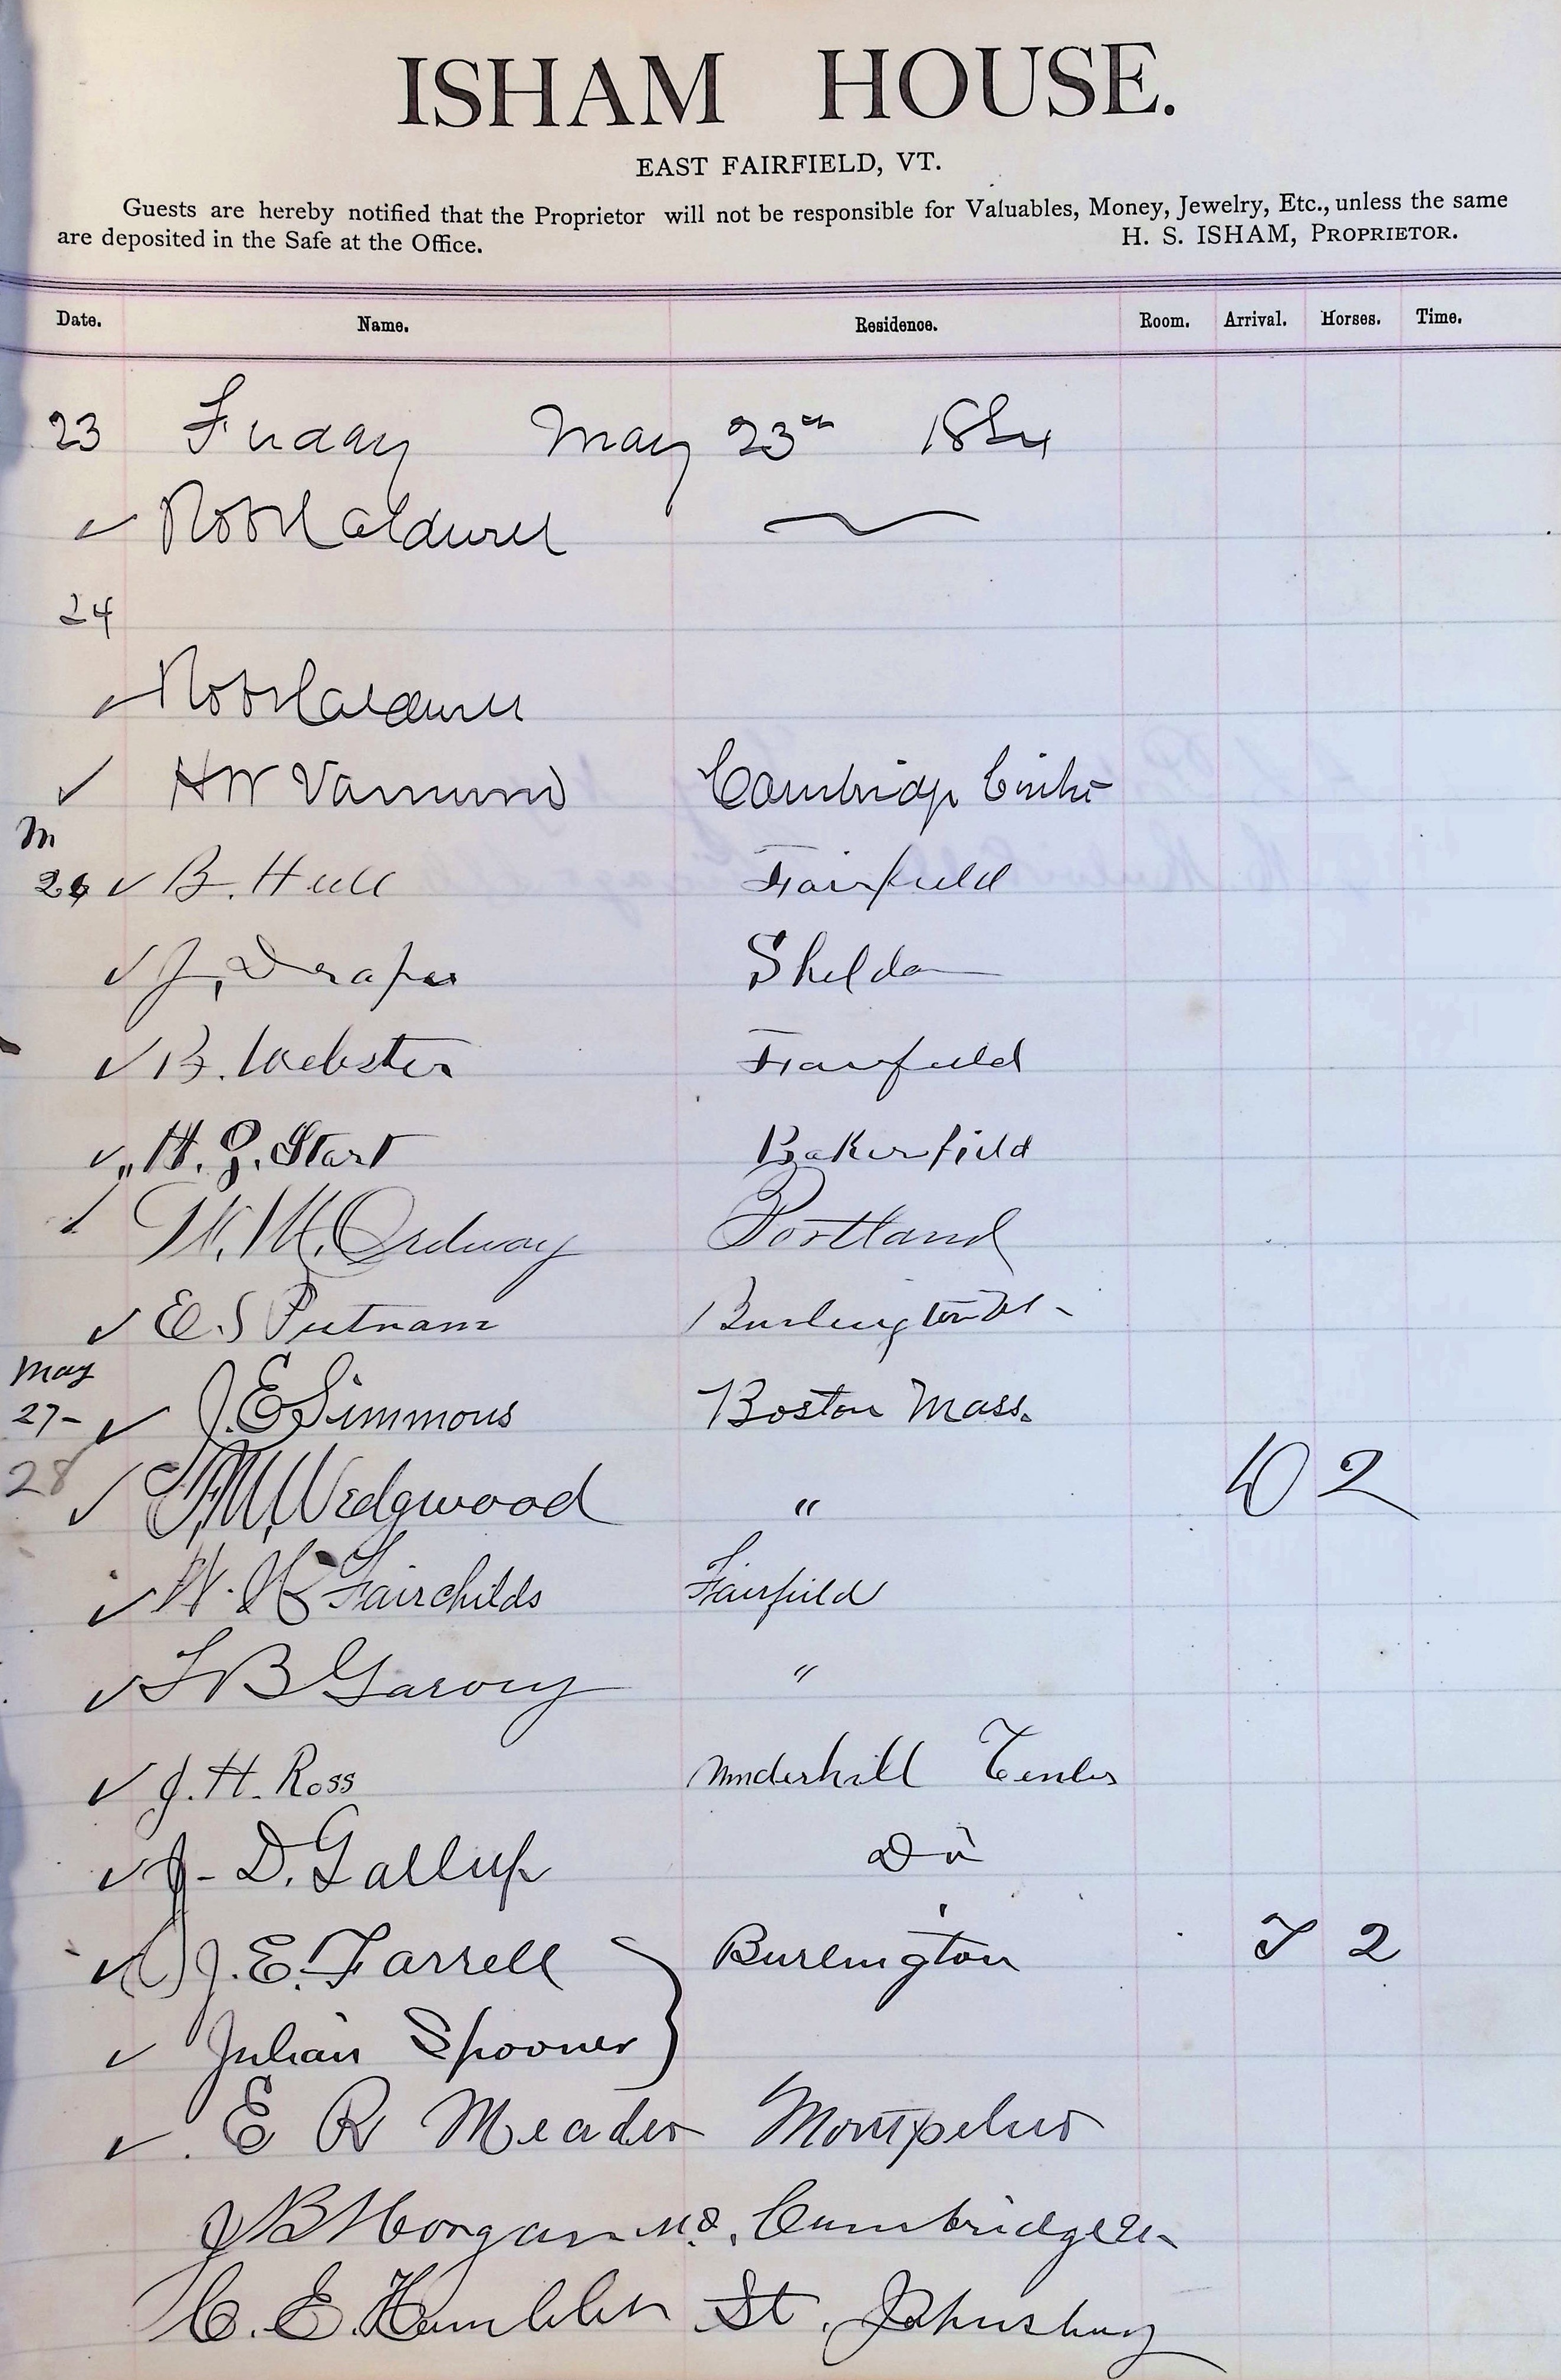 ISHAM HOUSE.
EAST FAIRFIELD, VT.
Guests are hereby notified that the Proprietor will not be responsible for Valuables, Money, Jewelry, Etc., unless the same
are deposited in the Safe at the Office. H. S. ISHAM, PROPRIETOR.
Date. Name. Residence. Room. Arrival. Horses. Time.
23 Friday May 23rd 1884
Robt Caldwell
24
Robt Caldwell
H W Varnum Cambridge Centre
M
26 B. Hull Fairfield
J. Draper Sheldon
B. Webster Fairfield
" H. G. Start Bakerfield
W. M. Ordway Portland
E. S Putnam Burlington Vt -
May
27- J. E Simmons Boston Mass.
28 F. M. Wedgwood " D 2
W. H Fairchilds Fairfield
B Garvey "
J. H. Ross Underhill Center
J- D. Gallup Do
J. E. Farrell Burlington T 2
Julian Spooner
E R Meader Montpelier
J B Morgan M.D. Cambridge Vt-
C. E. St. Johnsbury